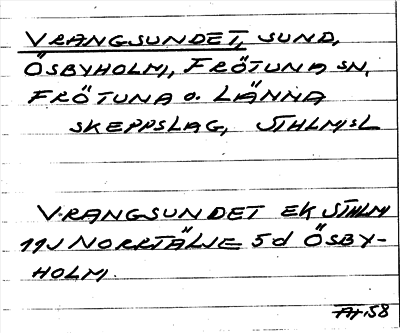 VRANGSUNDET, SUND,
ÖSBYHOLM, FRÖTUNA SN,
FRÖTUNA o. LÄNNA
SKEPPSLAG, STHLMSL
VRANGSUNDET EK STHLM
11J NORRTÄLJE 5d ÖSBY-
HOLM.
58